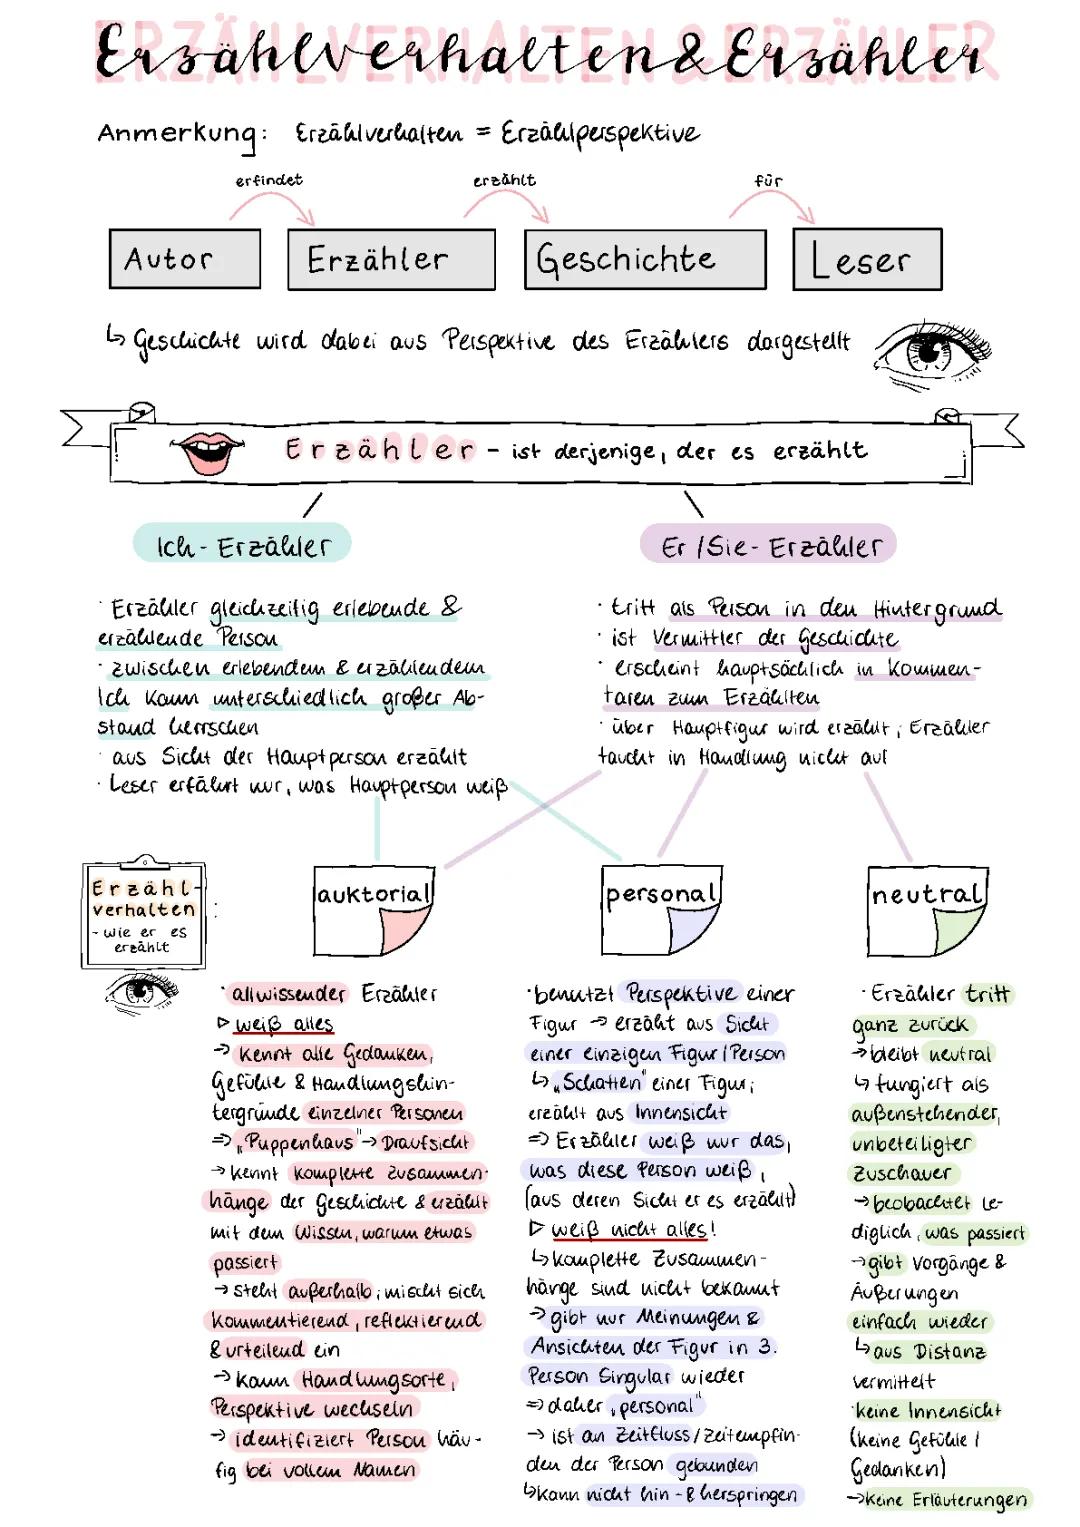 Erzählverhalten & Erzähler
Anmerkung: Erzählverhalten = Erzählperspektive
erfindet erzählt für
Autor Erzähler Geschichte Leser
↳ Geschichte wird dabei aus Perspektive des Erzählers dargestellt
Erzähler - ist derjenige, der es erzählt
Ich-Erzähler
· Erzähler gleichzeitig erlebende &
erzählende Person
· zwischen erlebendem & erzählendem
Ich kann unterschiedlich großer Ab-
stand herrschen
· aus Sicht der Hauptperson erzählt
· Leser erfährt nur, was Hauptperson weiß
Er/Sie-Erzähler
· tritt als Person in den Hintergrund
· ist Vermittler der Geschichte
· erscheint hauptsächlich in Kommen-
taren zum Erzählten
· über Hauptfigur wird erzählt; Erzähler
taucht in Handlung nicht auf
Erzähl-
verhalten :
- wie er es
erzählt
auktorial
· allwissender Erzähler
▷ weiß alles
→ kennt alle Gedanken,
Gefühle & Handlungshin-
tergründe einzelner Personen
⇒ „Puppenhaus" → Draufsicht
→ kennt komplette Zusammen-
hänge der Geschichte & erzählt
mit dem Wissen, warum etwas
passiert
→ steht außerhalb; mischt sich
kommentierend, reflektierend
& urteilend ein
→ kann Handlungsorte,
Perspektive wechseln
→ identifiziert Person häu-
fig bei vollem Namen
personal
· benutzt Perspektive einer
Figur → erzählt aus Sicht
einer einzigen Figur/Person
↳ „Schatten" einer Figur;
erzählt aus Innensicht
⇒ Erzähler weiß nur das,
was diese Person weiß,
(aus deren Sicht er es erzählt)
▷ weiß nicht alles!
↳ komplette Zusammen-
hänge sind nicht bekannt
→ gibt nur Meinungen &
Ansichten der Figur in 3.
Person Singular wieder
⇒ daher „personal"
→ ist an Zeitfluss/Zeitempfin-
den der Person gebunden
↳ kann nicht hin- & herspringen
neutral
· Erzähler tritt
ganz zurück
→ bleibt neutral
↳ fungiert als
außenstehender,
unbeteiligter
Zuschauer
→ beobachtet le-
diglich, was passiert
→ gibt Vorgänge &
Äußerungen
einfach wieder
↳ aus Distanz
vermittelt
· keine Innensicht
(keine Gefühle /
Gedanken)
→ keine Erläuterungen